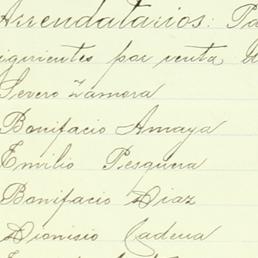 Arrendatarios: Pa
iguientes por venta d
Severo Zamora
Bonifacio Amaya
Emilio Pesquera
Bonifacio Diaz
Dionisio Cadena